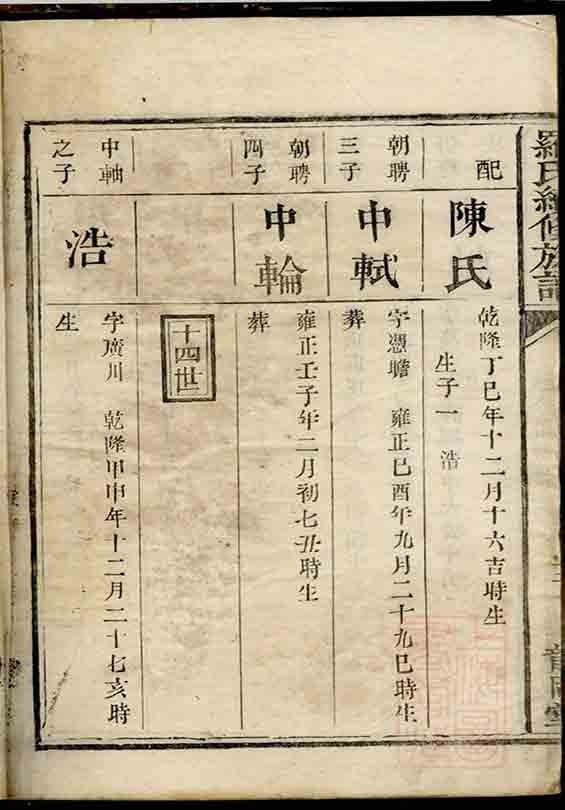 羅氏續修族譜
配
陳氏
乾隆丁巳年十二月十六吉時生
生子一 浩
朝聘三子
中軾
字憑瞻 雍正己酉年九月二十九巳時生
葬
朝聘四子
中輪
雍正壬子年二月初七丑時生
葬
十四世
中軸之子
浩
字廣川 乾隆甲申年十二月二十七亥時
生